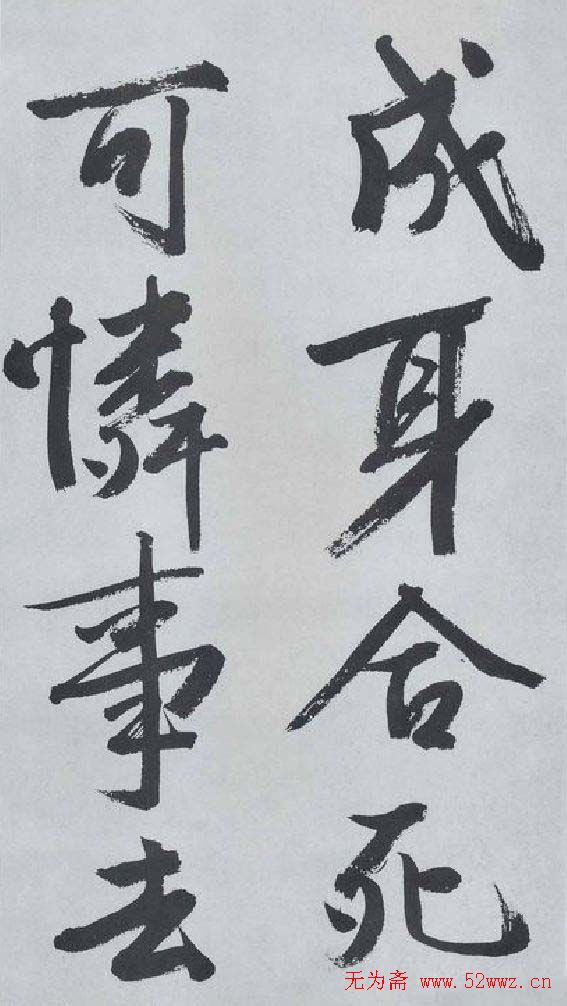 成身合死
可憐事去
无为斋 www.52wwz.cn